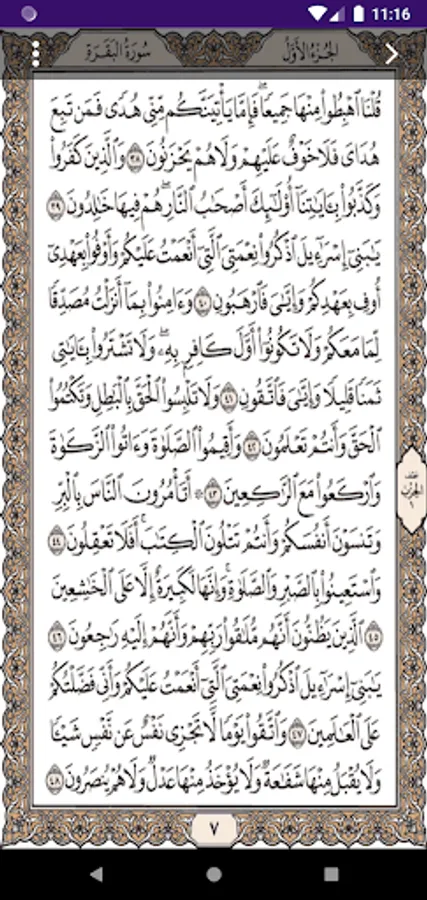 11:16
الجُزءُ الأَوَّلُ
سُورَةُ البَقَرَةِ
قُلْنَا ٱهْبِطُوا۟ مِنْهَا جَمِيعًۭا ۖ فَإِمَّا يَأْتِيَنَّكُم مِّنِّى هُدًۭى فَمَن تَبِعَ
هُدَاىَ فَلَا خَوْفٌ عَلَيْهِمْ وَلَا هُمْ يَحْزَنُونَ ٣٨ وَٱلَّذِينَ كَفَرُوا۟
وَكَذَّبُوا۟ بِـَٔايَـٰتِنَآ أُو۟لَـٰٓئِكَ أَصْحَـٰبُ ٱلنَّارِ ۖ هُمْ فِيهَا خَـٰلِدُونَ ٣٩
يَـٰبَنِىٓ إِسْرَٰٓءِيلَ ٱذْكُرُوا۟ نِعْمَتِىَ ٱلَّتِىٓ أَنْعَمْتُ عَلَيْكُمْ وَأَوْفُوا۟ بِعَهْدِىٓ
أُوفِ بِعَهْدِكُمْ وَإِيَّـٰىَ فَٱرْهَبُونِ ٤٠ وَءَامِنُوا۟ بِمَآ أَنزَلْتُ مُصَدِّقًۭا
لِّمَا مَعَكُمْ وَلَا تَكُونُوٓا۟ أَوَّلَ كَافِرٍۭ بِهِۦ ۖ وَلَا تَشْتَرُوا۟ بِـَٔايَـٰتِى
ثَمَنًۭا قَلِيلًۭا وَإِيَّـٰىَ فَٱتَّقُونِ ٤١ وَلَا تَلْبِسُوا۟ ٱلْحَقَّ بِٱلْبَـٰطِلِ وَتَكْتُمُوا۟
ٱلْحَقَّ وَأَنتُمْ تَعْلَمُونَ ٤٢ وَأَقِيمُوا۟ ٱلصَّلَوٰةَ وَءَاتُوا۟ ٱلزَّكَوٰةَ
وَٱرْكَعُوا۟ مَعَ ٱلرَّٰكِعِينَ ٤٣ ۞ أَتَأْمُرُونَ ٱلنَّاسَ بِٱلْبِرِّ
وَتَنسَوْنَ أَنفُسَكُمْ وَأَنتُمْ تَتْلُونَ ٱلْكِتَـٰبَ ۚ أَفَلَا تَعْقِلُونَ ٤٤
وَٱسْتَعِينُوا۟ بِٱلصَّبْرِ وَٱلصَّلَوٰةِ ۚ وَإِنَّهَا لَكَبِيرَةٌ إِلَّا عَلَى ٱلْخَـٰشِعِينَ
٤٥ ٱلَّذِينَ يَظُنُّونَ أَنَّهُم مُّلَـٰقُوا۟ رَبِّهِمْ وَأَنَّهُمْ إِلَيْهِ رَٰجِعُونَ ٤٦
يَـٰبَنِىٓ إِسْرَٰٓءِيلَ ٱذْكُرُوا۟ نِعْمَتِىَ ٱلَّتِىٓ أَنْعَمْتُ عَلَيْكُمْ وَأَنِّى فَضَّلْتُكُمْ
عَلَى ٱلْعَـٰلَمِينَ ٤٧ وَٱتَّقُوا۟ يَوْمًۭا لَّا تَجْزِى نَفْسٌ عَن نَّفْسٍۢ شَيْـًۭٔا
وَلَا يُقْبَلُ مِنْهَا شَفَـٰعَةٌۭ وَلَا يُؤْخَذُ مِنْهَا عَدْلٌۭ وَلَا هُمْ يُنصَرُونَ ٤٨
نصف
الحزب
١
٧